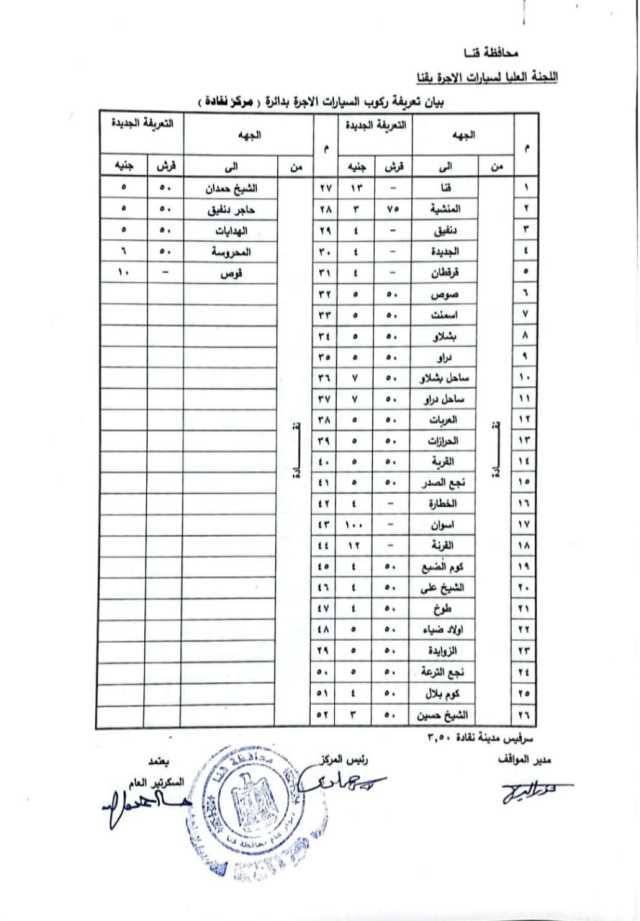 محافظة قنا
اللجنة العليا لسيارات الاجرة بقنا
بيان تعريفة ركوب السيارات الاجرة بدائرة ( مركز نقادة )
م الجهه التعريفة الجديدة م الجهه التعريفة الجديدة
من الى قرش جنيه من الى قرش جنيه
نقــــادة نقــــادة
١ قنا - ١٣ ٢٧ الشيخ حمدان ٥٠ ٥
٢ المنشية ٧٥ ٣ ٢٨ حاجر دنفيق ٥٠ ٥
٣ دنفيق - ٤ ٢٩ الهدايات ٥٠ ٥
٤ الجديدة - ٤ ٣٠ المحروسة ٥٠ ٦
٥ قرقطان - ٤ ٣١ قوص - ١٠
٦ صوص ٥٠ ٥ ٣٢
٧ اسمنت ٥٠ ٥ ٣٣
٨ بشلاو ٥٠ ٥ ٣٤
٩ دراو ٥٠ ٥ ٣٥
١٠ ساحل بشلاو ٥٠ ٧ ٣٦
١١ ساحل دراو ٥٠ ٧ ٣٧
١٢ العربات ٥٠ ٥ ٣٨
١٣ الحرازات ٥٠ ٥ ٣٩
١٤ القرية ٥٠ ٥ ٤٠
١٥ نجع الصدر ٥٠ ٥ ٤١
١٦ الخطارة - ٤ ٤٢
١٧ اسوان - ١٠٠ ٤٣
١٨ القرنة - ١٢ ٤٤
١٩ كوم الضبع ٥٠ ٤ ٤٥
٢٠ الشيخ على ٥٠ ٤ ٤٦
٢١ طوخ ٥٠ ٤ ٤٧
٢٢ اولاد ضياء ٥٠ ٥ ٤٨
٢٣ الزوايدة ٥٠ ٥ ٢٩
٢٤ نجع الترعة ٥٠ ٥ ٥٠
٢٥ كوم بلال ٥٠ ٤ ٥١
٢٦ الشيخ حسين ٥٠ ٣ ٥٢
سرفيس مدينة نقادة ٣,٥٠
مدير المواقف رئيس المركز يعتمد
السكرتير العام
محافظة قنا